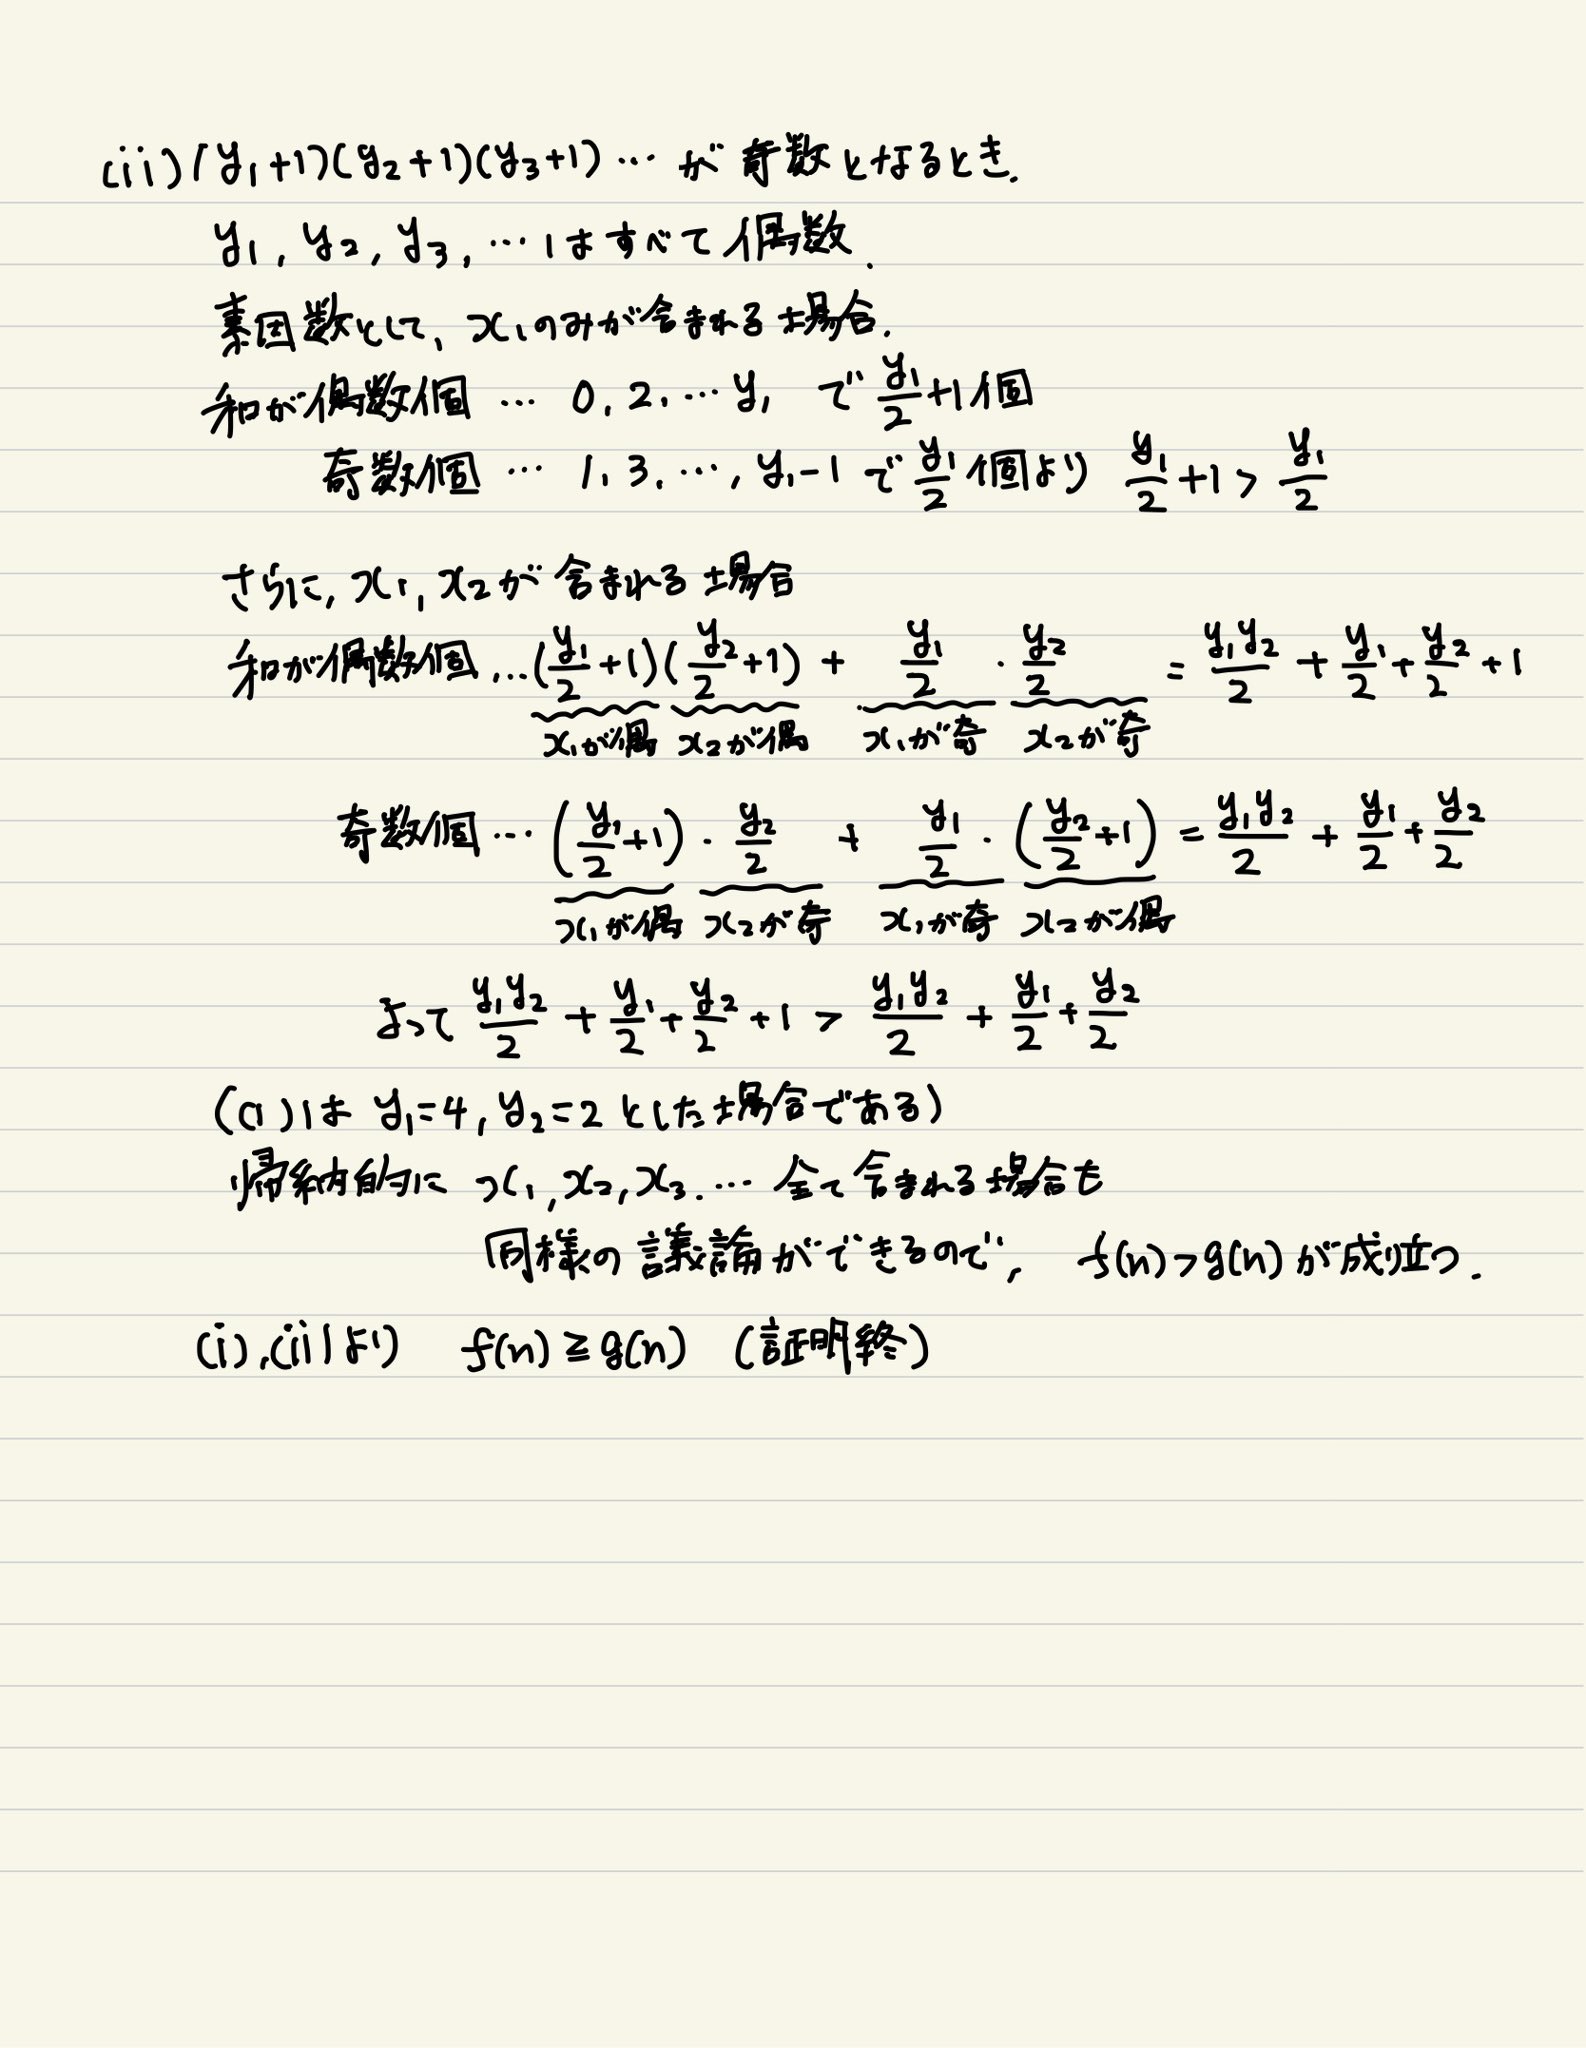 (ii) (y₁+1)(y₂+1)(y₃+1)… が奇数となるとき.
y₁, y₂, y₃, … はすべて偶数.
素因数として, x₁のみが含まれる場合.
和が偶数個 … 0, 2, … y₁ で y₁/2+1個
奇数個 … 1, 3, …, y₁-1 で y₁/2 個より y₁/2+1 > y₁/2
さらに, x₁, x₂が含まれる場合
和が偶数個 … (y₁/2+1)(y₂/2+1) + y₁/2・y₂/2 = y₁y₂/2 + y₁/2 + y₂/2 + 1
x₁が偶 x₂が偶 x₁が奇 x₂が奇
奇数個 … (y₁/2+1)・y₂/2 + y₁/2・(y₂/2+1) = y₁y₂/2 + y₁/2 + y₂/2
x₁が偶 x₂が奇 x₁が奇 x₂が偶
よって y₁y₂/2 + y₁/2 + y₂/2 + 1 > y₁y₂/2 + y₁/2 + y₂/2
((1)は y₁=4, y₂=2 とした場合である)
帰納的に x₁, x₂, x₃. … 全て含まれる場合も
同様の議論ができるので, f(n)>g(n) が成り立つ.
(i), (ii)より f(n) ≧ g(n) (証明終)